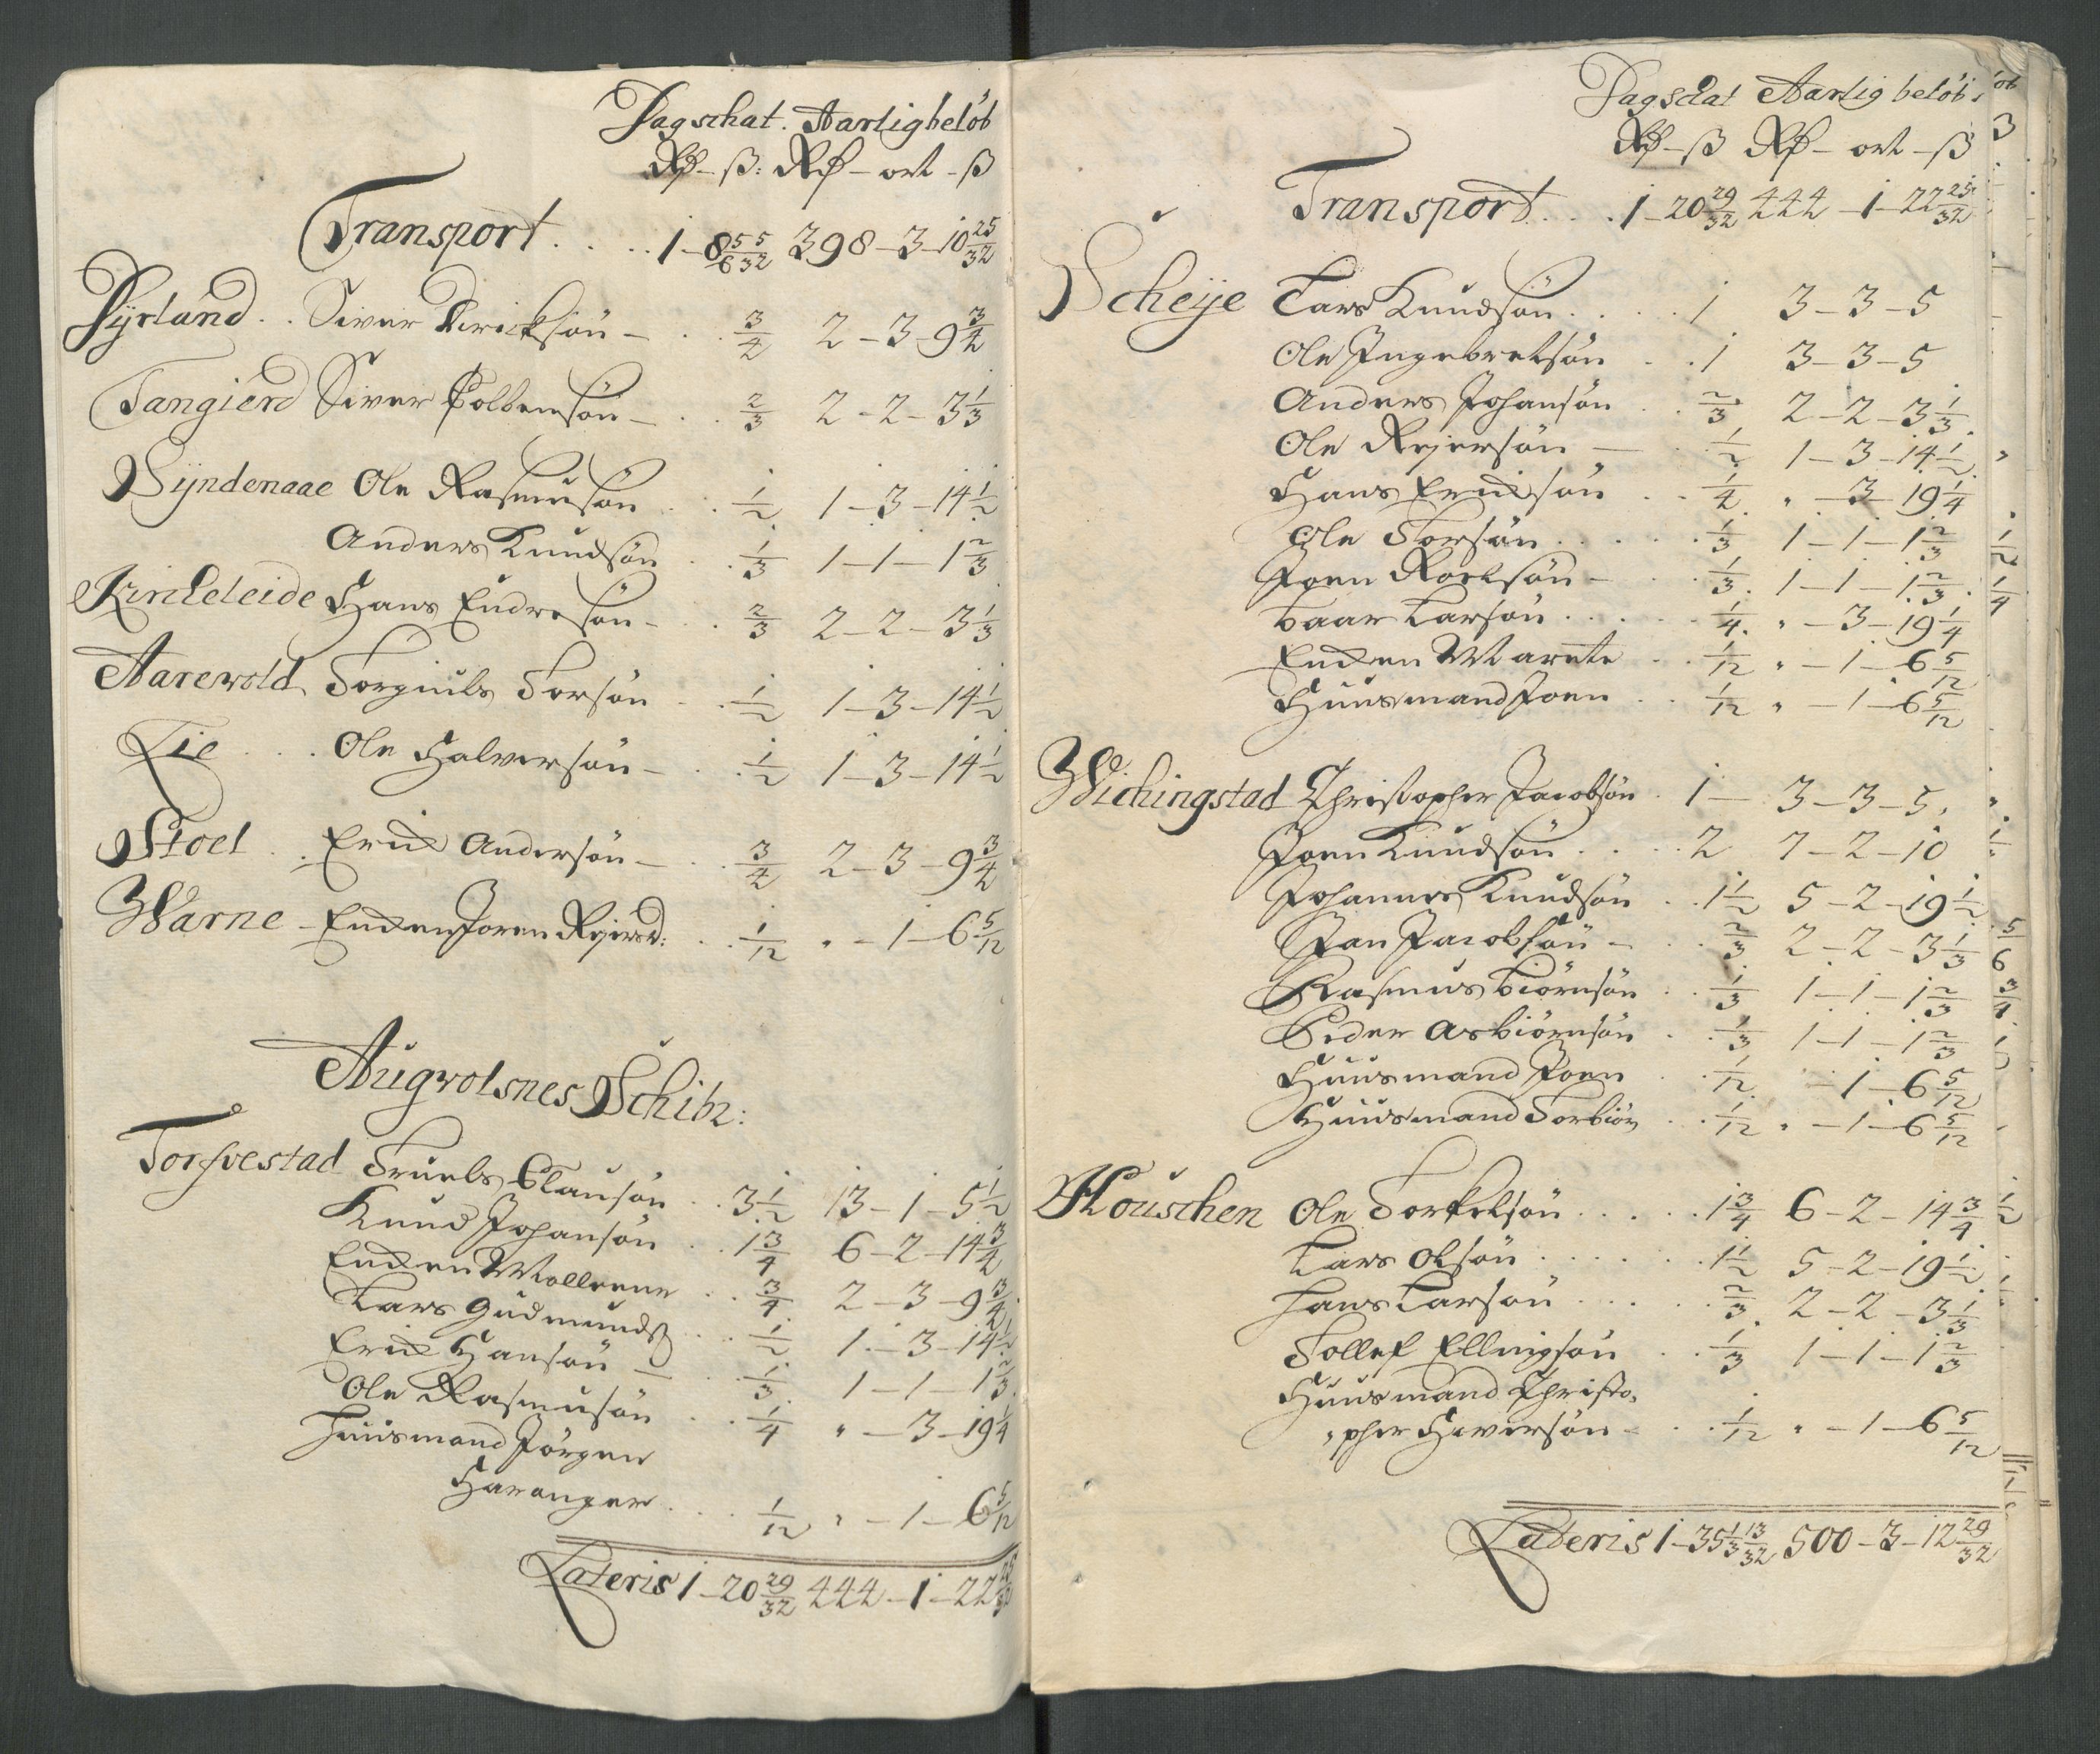 Dagschat. Aarligbeløb
Rd – ß: Rd – ort – ß
Transport . . . . 1 – 8 5/6 5/32 398 – 3 – 10 25/32
Pÿrland . . Siver Dirichsøn – . . 3/4 2 – 3 – 9 3/4
Tangierd Siver Colbensøn – . . 2/3 2 – 2 – 3 1/3
Sÿndenaae Ole Rasmusøn . . 1/2 1 – 3 – 14 1/2
Anders Knudsøn . . 1/3 1 – 1 – 1 2/3
Kirkeleide Hans Endresøn – . . 2/3 2 – 2 – 3 1/3
Aarewold Torgiuls Torsøn . . 1/2 1 – 3 – 14 1/2
Lie . . . Ole Halversøn – . . 1/2 1 – 3 – 14 1/2
Stoel . . Erich Andersøn – . . 3/4 2 – 3 – 9 3/4
Warne – Enchen Joren Reiersd: . . 1/12 " – 1 – 6 5/12
Augwolsnes Schibr:
Torfvestad Truels Clausøn . . 3 1/2 13 – 1 – 5 1/2
Knud Johansøn . . 1 3/4 6 – 2 – 14 3/4
Enchen Wallerene . . 3/4 2 – 3 – 9 3/4
Lars Gudmundß . . 1/2 1 – 3 – 14 1/2
Erich Hansøn – . . 1/3 1 – 1 – 1 2/3
Ole Rasmusøn . . 1/4 " – 3 – 19 1/4
Huusmand Jørgen
Haranger . . . 1/12 " – 1 – 6 5/12
Lateris 1 – 20 29/32 444 – 1 – 22 25/32
Dagschat Aarlig beløb
Rd – ß Rd – ort – ß
Transport . . . 1 – 20 29/32 444 – 1 – 22 25/32
Scheije Lars Knudsøn . . . . 1 3 – 3 – 5
Ole Ingebretsøn . . 1 3 – 3 – 5
Anders Johansøn . . 2/3 2 – 2 – 3 1/3
Ole Reiersøn – . 1/2 1 – 3 – 14 1/2
Hans Erichsøn . . 1/4 " – 3 – 19 1/4
Ole Torsøn . . . . 1/3 1 – 1 – 1 2/3
Joen Roelsøn – . . 1/3 1 – 1 – 1 2/3
Baar Larsøn . . . . 1/4 " – 3 – 19 1/4
Enchen Marete . . 1/12 " – 1 – 6 5/12
Huusmand Joen . . 1/12 " – 1 – 6 5/12
Wichingstad Christopher Jacobsøn . 1 – 3 – 3 – 5
Joen Knudsøn . . . . 2 7 – 2 – 10
Johannes Knudsøn . . 1 1/2 5 – 2 – 19 1/2
Jan Jacobsøn – . . 2/3 2 – 2 – 3 1/3
Rasmus Biørnsøn . . 1/3 1 – 1 – 1 2/3
Peder Asbiørnsøn . . 1/3 1 – 1 – 1 2/3
Huusmand Joen . . 1/12 – 1 – 6 5/12
Huusmand Torbiør . . 1/12 " – 1 – 6 5/12
Houschen Ole Torkelsøn . . . . . 1 3/4 6 – 2 – 14 3/4
Lars Olsøn . . . . . . 1 1/2 5 – 2 – 19 1/2
Hans Larsøn . . . . . 2/3 2 – 2 – 3 1/3
Tollef Ellingsøn . . 1/3 1 – 1 – 1 2/3
Huusmand Christo-
"pher Siversøn – . . 1/12 " – 1 – 6 5/12
Lateris 1 – 35 1/3 13/32 500 – 3 – 12 29/32